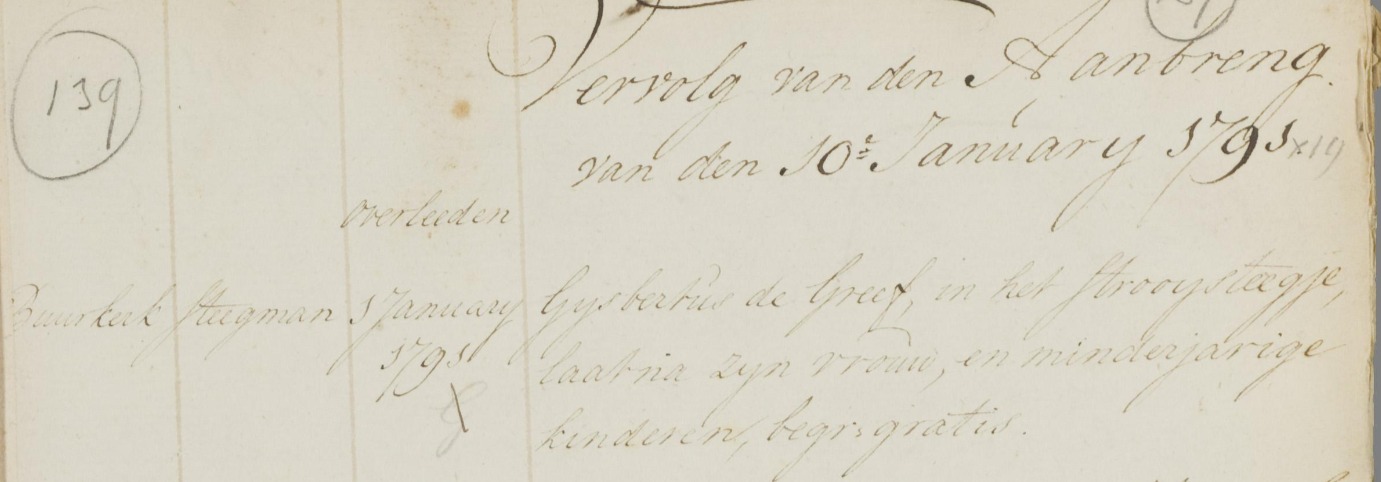 139
Vervolg van den Aanbreng.
van den 10e January 1791 x19
overleeden
Buurkerk Steegman 1 January Gysbertus de Greef, in het Strooysteegje,
1791 laat na zyn vrouw, en minderjarige
kinderen, begr: gratis.